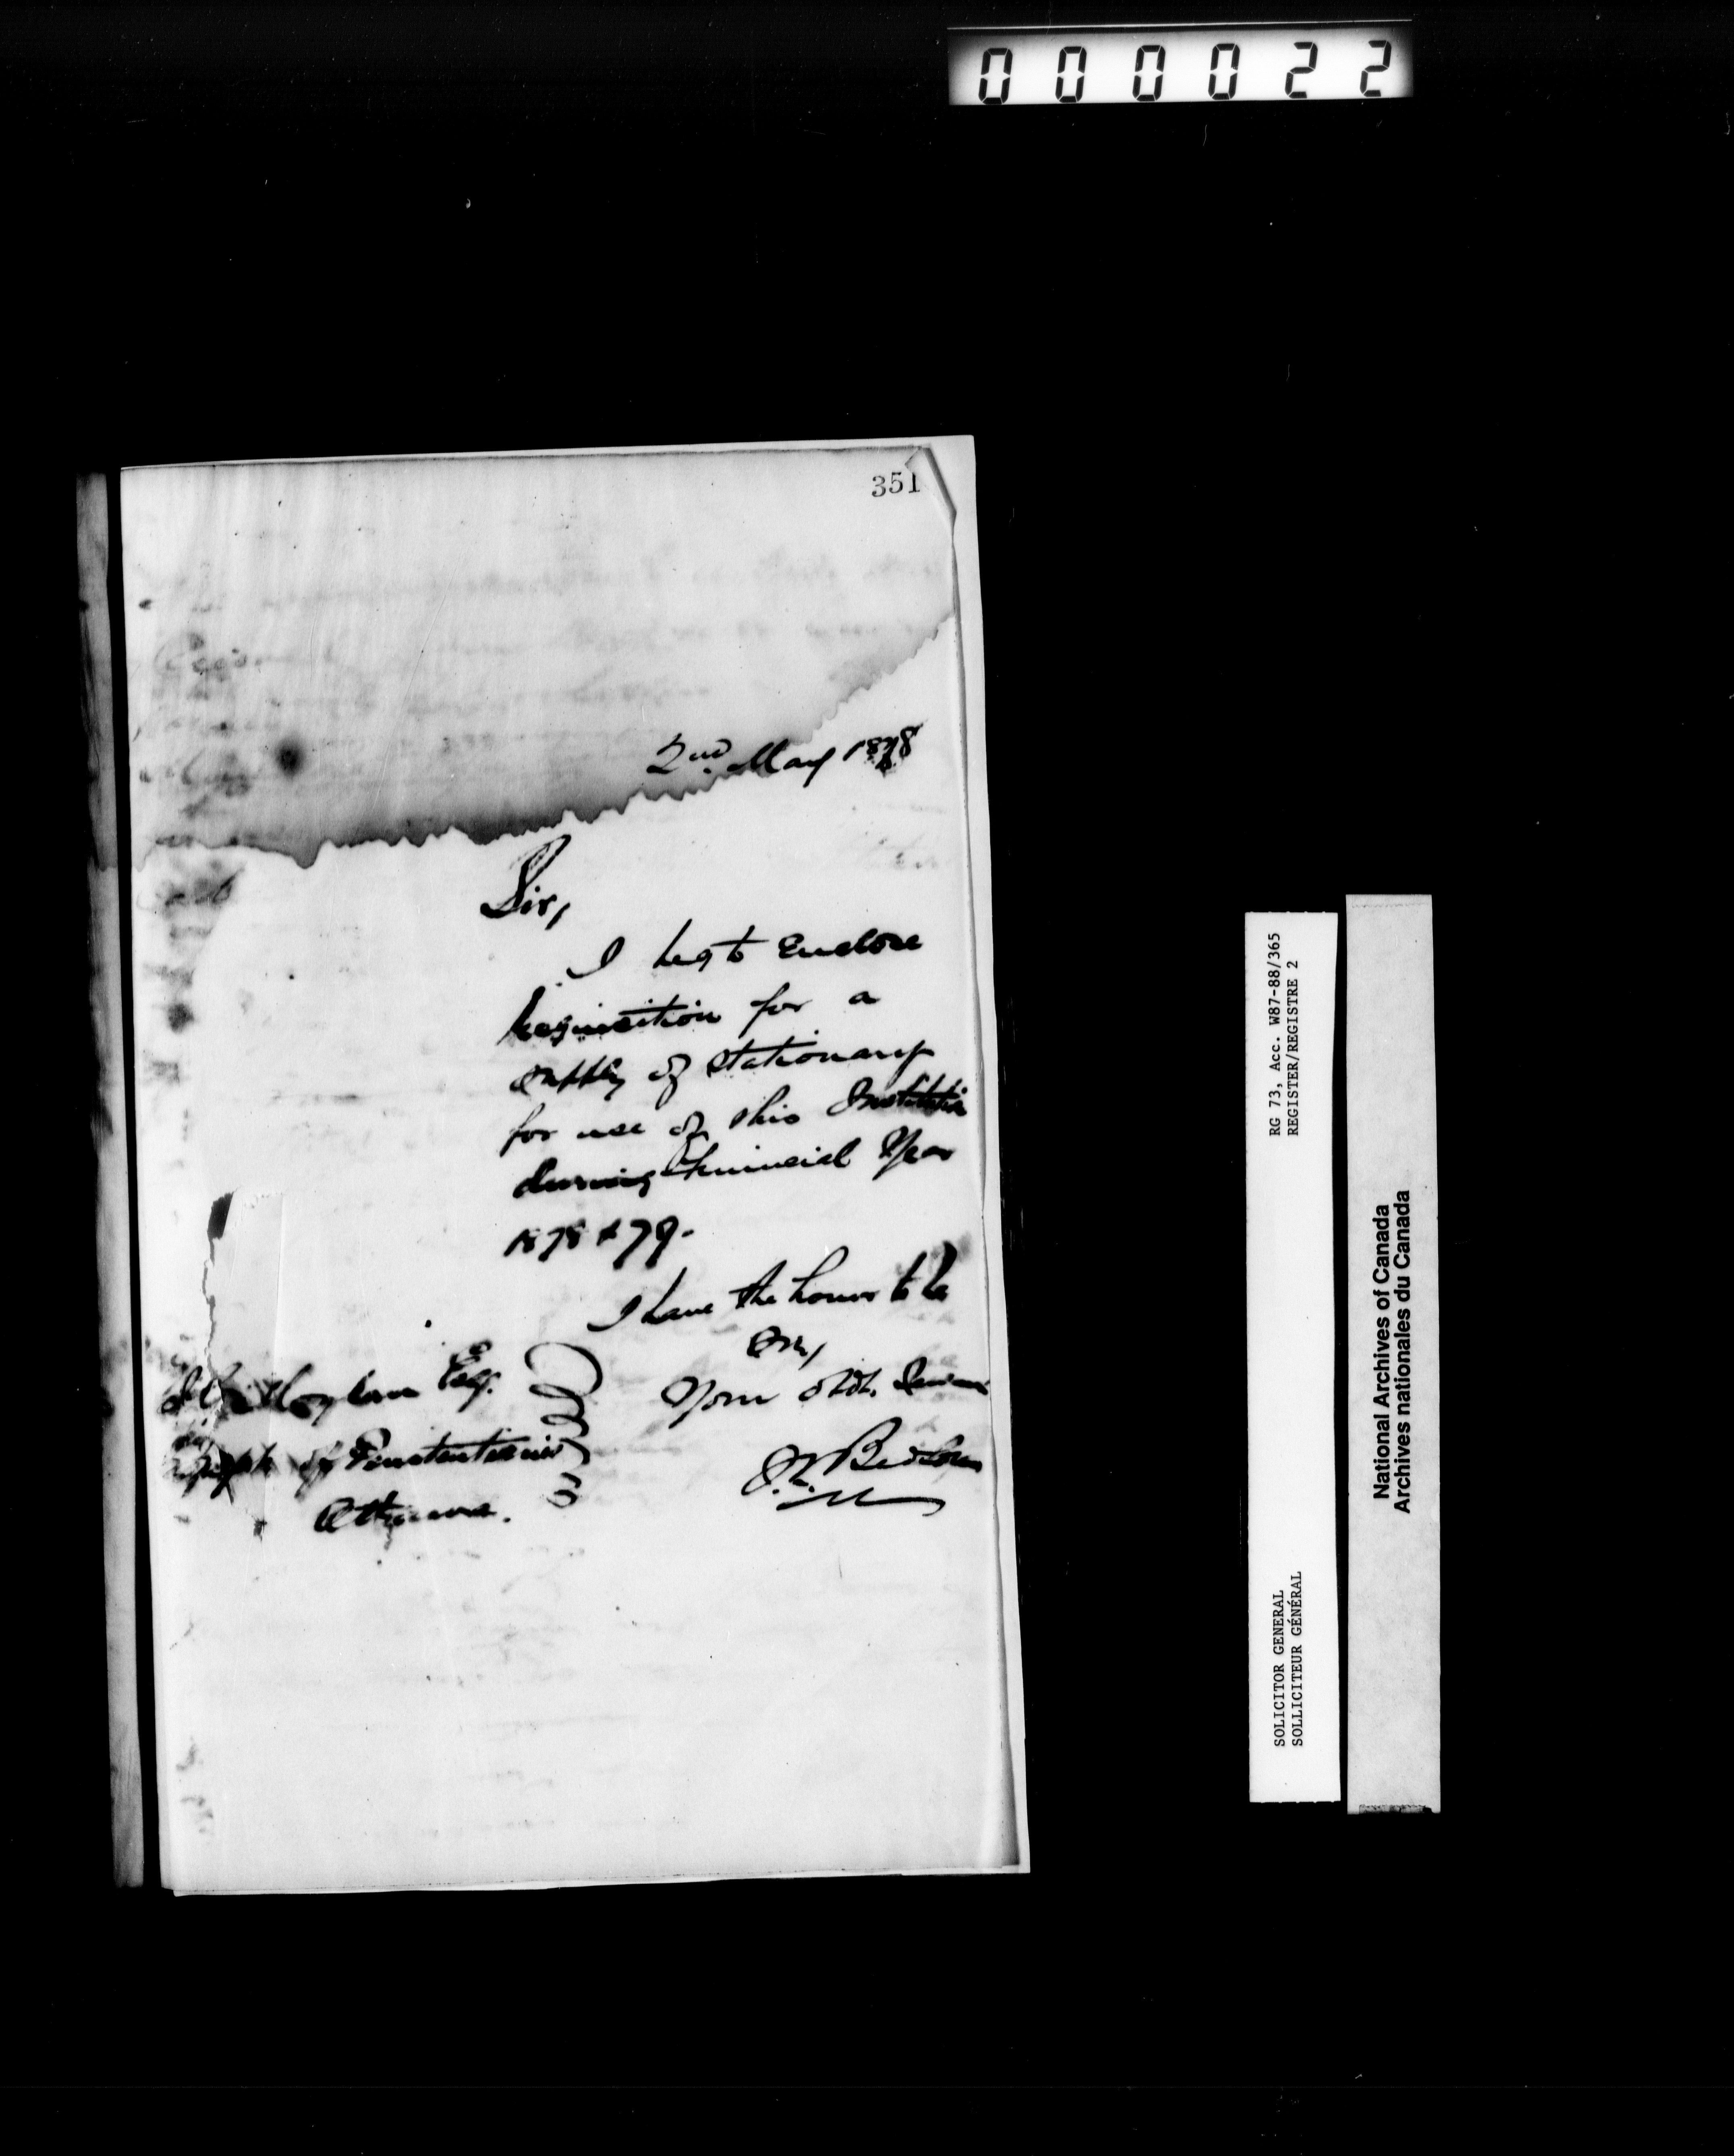 000022
351
2nd. May 1878
Sir,
I beg to enclose
Requisition for a
supply of stationary
for use of this Institution
during Financial Year
1878 & 79.
I have the honor to be
Sir,
Your obdt. Servant
Moylan Esq.
of Penitentiaries
Ottawa.
RG 73, Acc. W87-88/365
REGISTER/REGISTRE 2
SOLICITOR GENERAL
SOLLICITEUR GÉNÉRAL
National Archives of Canada
Archives nationales du Canada